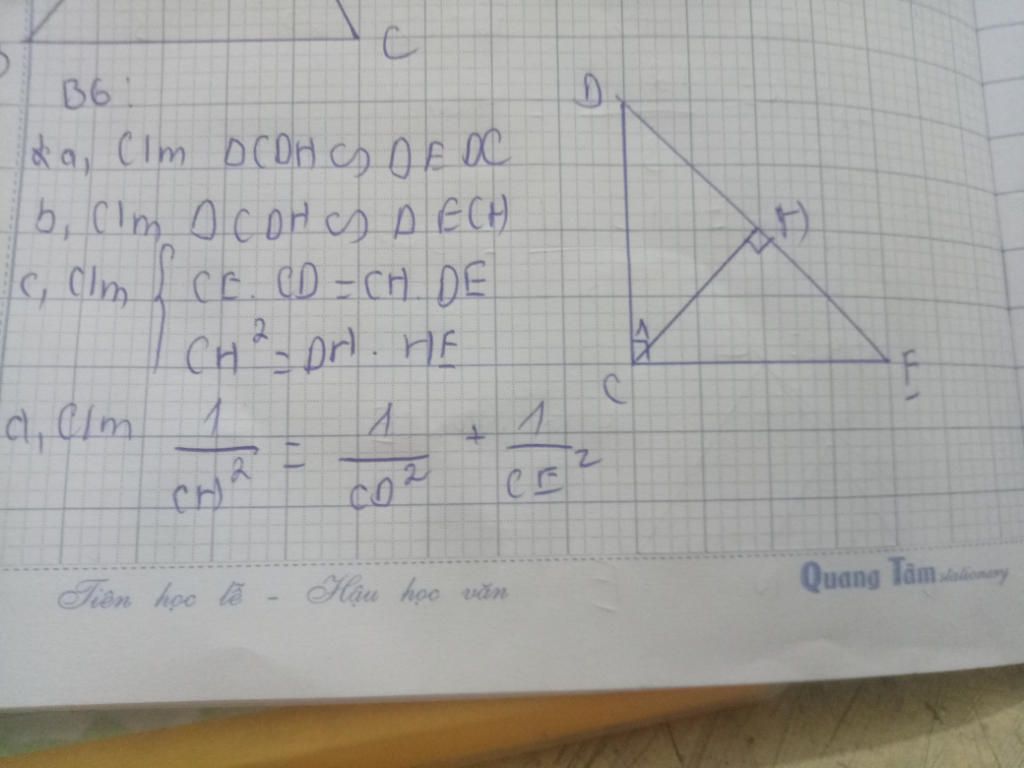 C
B6:
a, C/m ΔCDH ∽ ΔEDC
b, C/m ΔCDH ∽ ΔECH
c, C/m { CE. CD = CH. DE
CH² = DH. HE
d, C/m 1/CH² = 1/CD² + 1/CE²
D
H
C
E
Tiên học lễ - Hậu học văn
Quang Tâm stationery